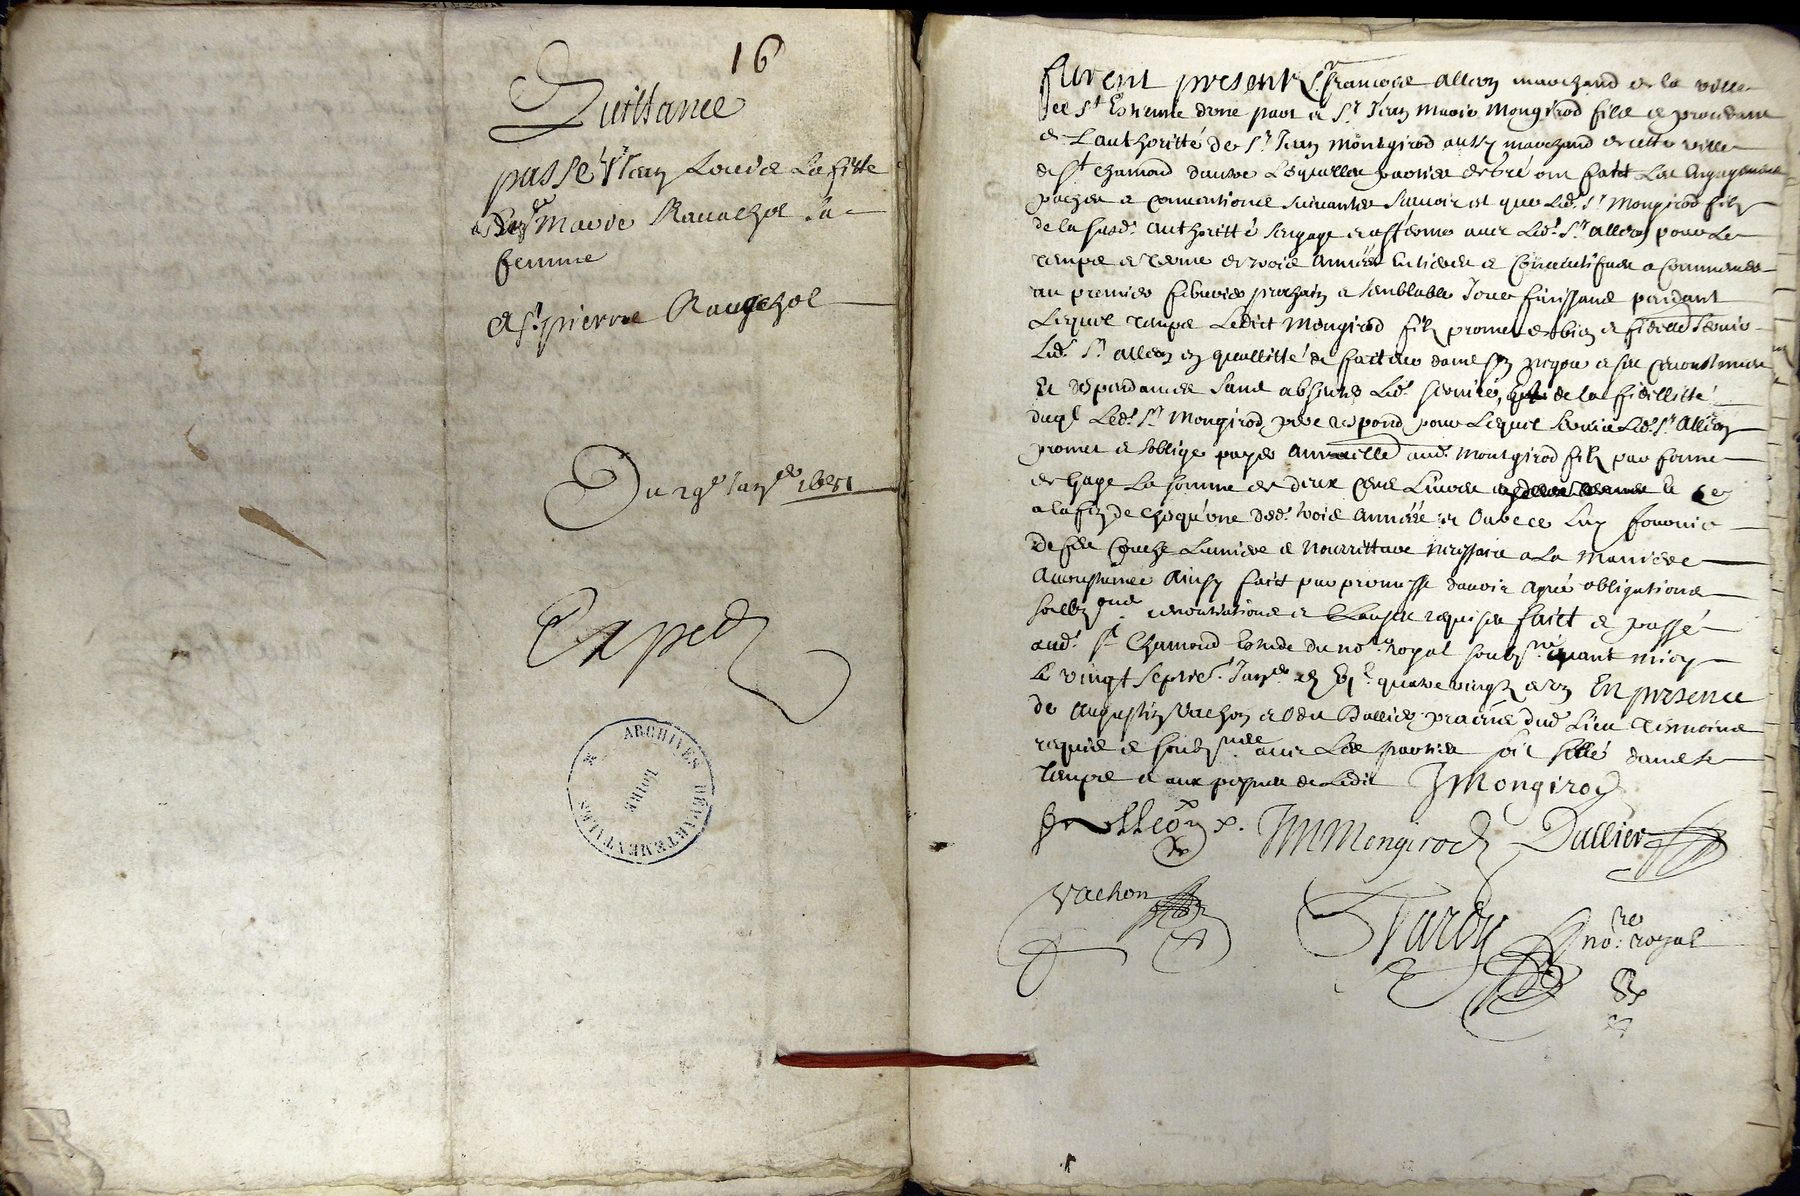 16
Quittance
passé Jean Louis Lafitte
& Marie Ravachol sa
femme
A Sr. pierre Ravachol
Du 29e Janer 1681
Exped
ARCHIVES DÉPARTEMENTALES
LOIRE
furent presents Sr. francois alleon marchand de la ville
de St Estienne d'une part et Sr. Jean Marie Mongirod fils et procedant
de l'authoritté de Sr. Jean Montgirod aussy marchand de cette ville
de St chamond d'autre Lesquelles parties de gré ont faict Les engagements
paches et conventions suivantes scavoir est que Led. Sr. Mongirod fils
de la susd. authoritté s'engage et afferme avec Led. Sr. alleon pour Le
temps et terme de trois années entieres et consecutifves a commencer
au premier febvrier prochain et semblable Jour finissant pendant
Lequel temps Ledict Mongirod fils promet de bien et fidellement servir
Led. Sr. alleon en quallitté de facteur dans son negoce et ses circonstances
et dependances sans absenter Led. service, de la fidellitté
duql. Led. Sr. Mongirod pere respond pour Lequel service Led. Sr. Alleon
promet et s'oblige payer aud. Montgirod fils par forme
de gage La somme de deux cens Livres
a la fin de chaqu'une desd. trois années et Outre ce Luy fournir
de feu couche Lumiere et nourritture necessaire a La maniere
accoustumée Ainsy faict par promesse d'avoir agreé obligations
soubmons renontiations et Clauses requises faict et passé
aud. St Chamond Estude du nore royal soubsné avant midy
Le vingt septie. Janer g quatre vingt et un En presence
de Augustin Vachon et Dallier praciens dud. Lieu tesmoins
requis et soubsnes avec Les parties soit sellé dans le
temps et aux peynes de Ledit JMongirod
fr Alleon
JMMongirod
Dallier
Vachon
Tardy
nore royal